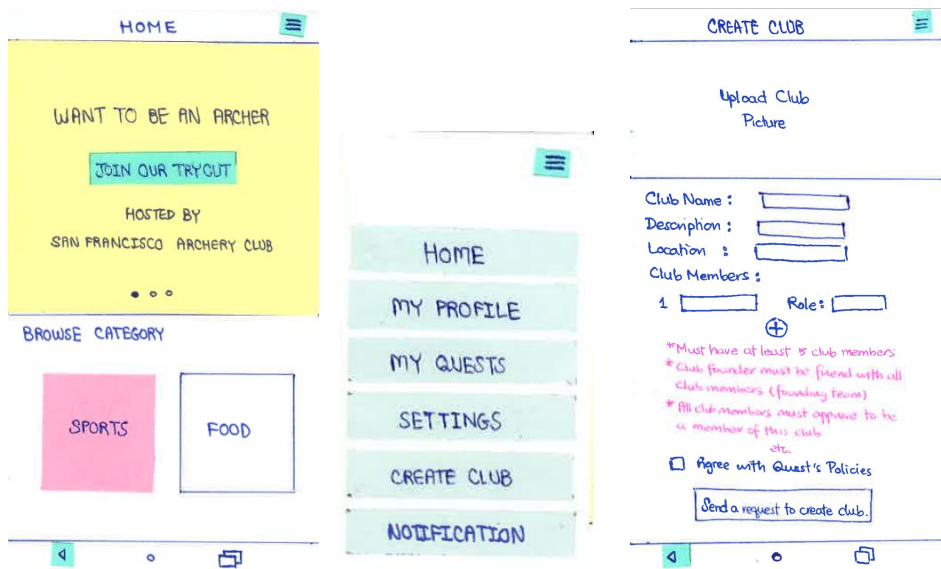 HOME
WANT TO BE AN ARCHER
JOIN OUR TRYOUT
HOSTED BY
SAN FRANCISCO ARCHERY CLUB
BROWSE CATEGORY
SPORTS
FOOD
HOME
MY PROFILE
MY QUESTS
SETTINGS
CREATE CLUB
NOTIFICATION
CREATE CLUB
Upload Club
Picture
Club Name :
Description :
Location :
Club Members :
1 Role:
*Must have at least 5 club members
*Club founder must be friend with all
club members (founding team)
*All club members must approve to be
a member of this club
etc.
Agree with Quest's Policies
Send a request to create club.